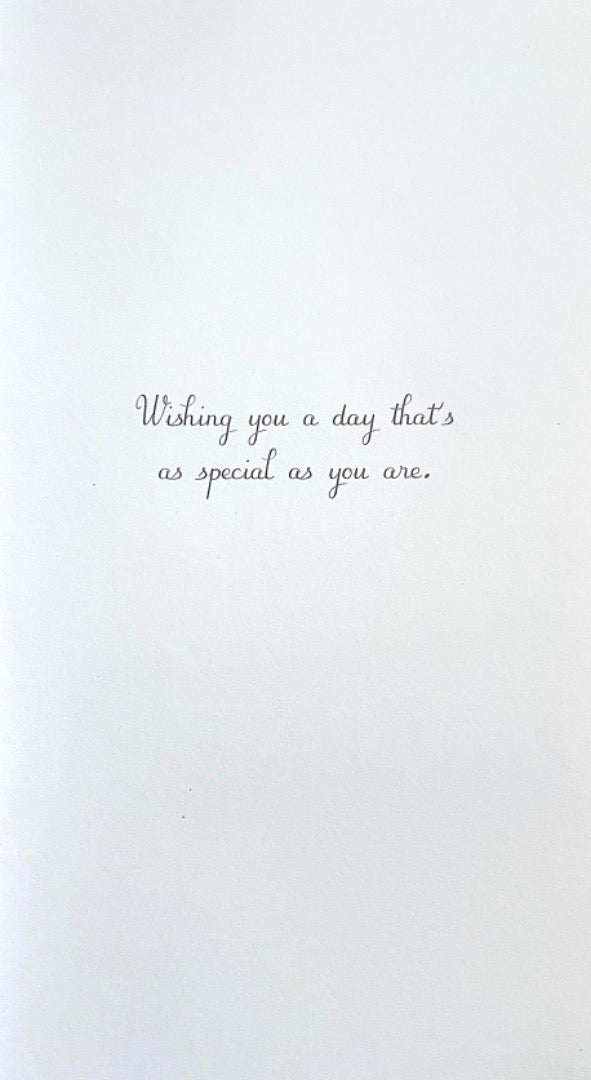 Wishing you a day that's
as special as you are.